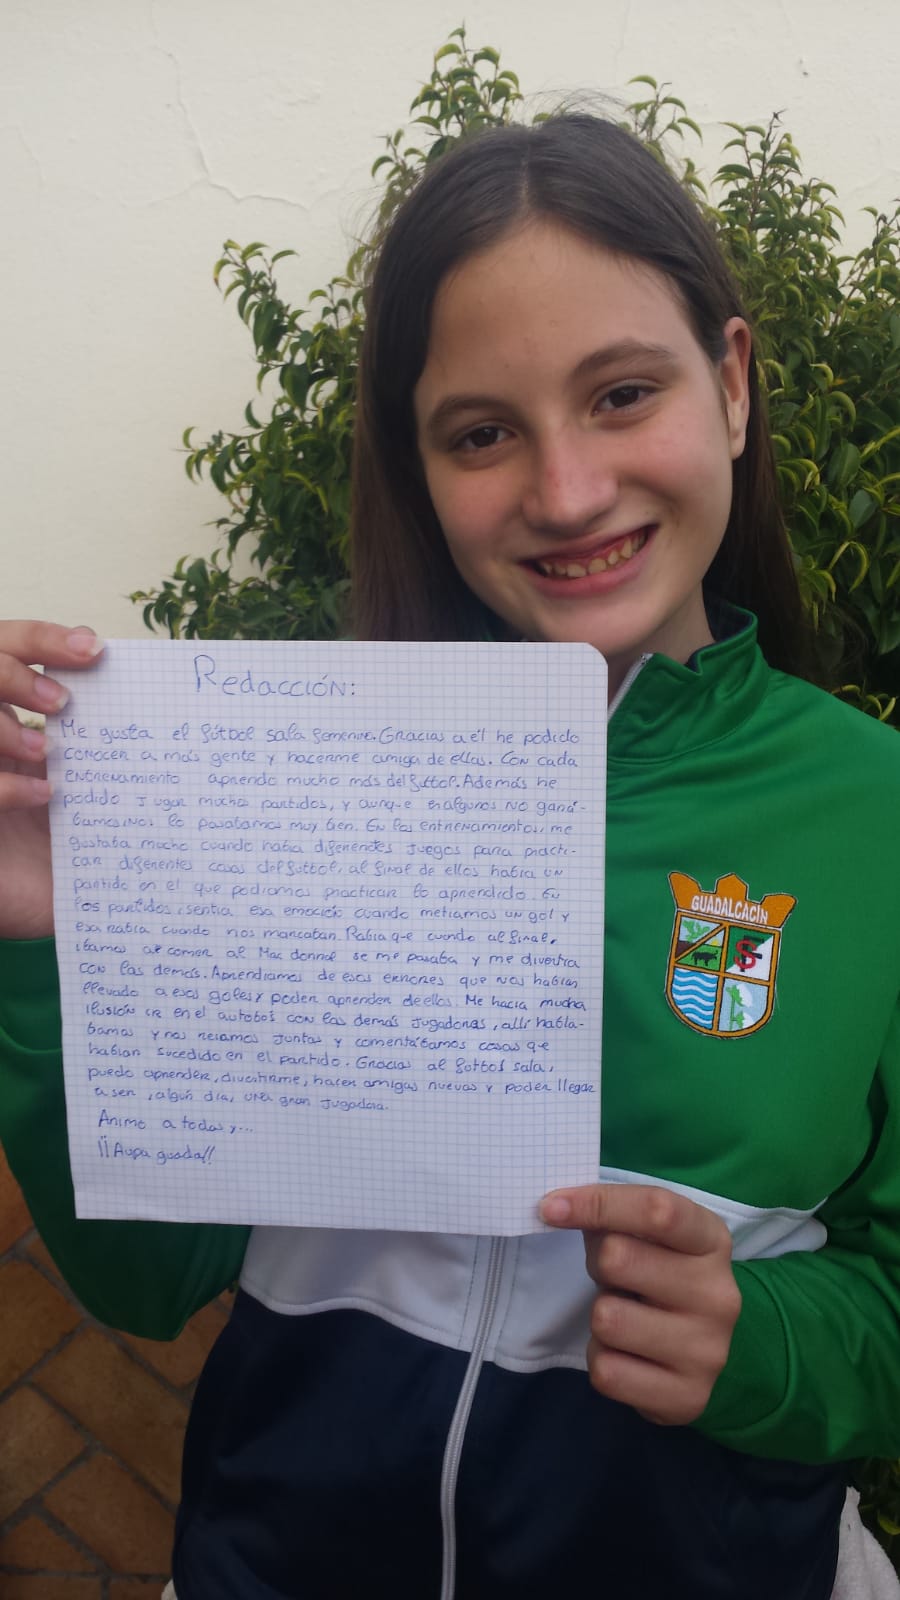 Redacción:
Me gusta el fútbol sala femenino. Gracias a él he podido
conocer a más gente y hacerme amiga de ellas. Con cada
entrenamiento aprendo mucho más del futbol. Además he
podido jugar muchos partidos, y aunque en algunos no ganá-
bamos, nos lo pasabamos muy bien. En los entrenamientos, me
gustaba mucho cuando había diferentes juegos para practi-
car diferentes cosas del futbol, al final de ellos había un
partido en el que podiamos practicar lo aprendido. En
los partidos, sentia esa emoción cuando metiamos un gol y
esa rabia cuando nos marcaban. Rabia que cuando al final,
ibamos a comer al Mac donnal se me pasaba y me divertia
con las demás. Aprendiamos de esos errores que nos habían
llevado a esos goles y poder aprender de ellos. Me hacia mucha
ilusión ir en el autobús con las demás jugadoras, allí habla-
bamos y nos reiamos juntas y comentábamos cosas que
habian sucedido en el partido. Gracias al futbol sala,
puedo aprender, divertirme, hacer amigas nuevas y poder llegar
a ser, algún día, una gran jugadora.
Animo a todas y...
¡¡Aupa guada!!
GUADALCACÍN